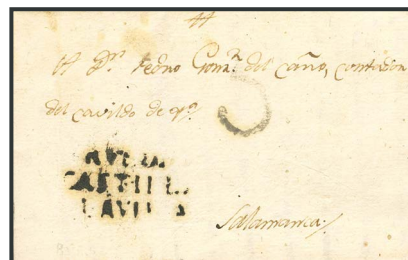 A Dn. Pedro Gonz. del Caño, contador
del cavildo de
CASTILLA
LAVIEJA
Salamanca